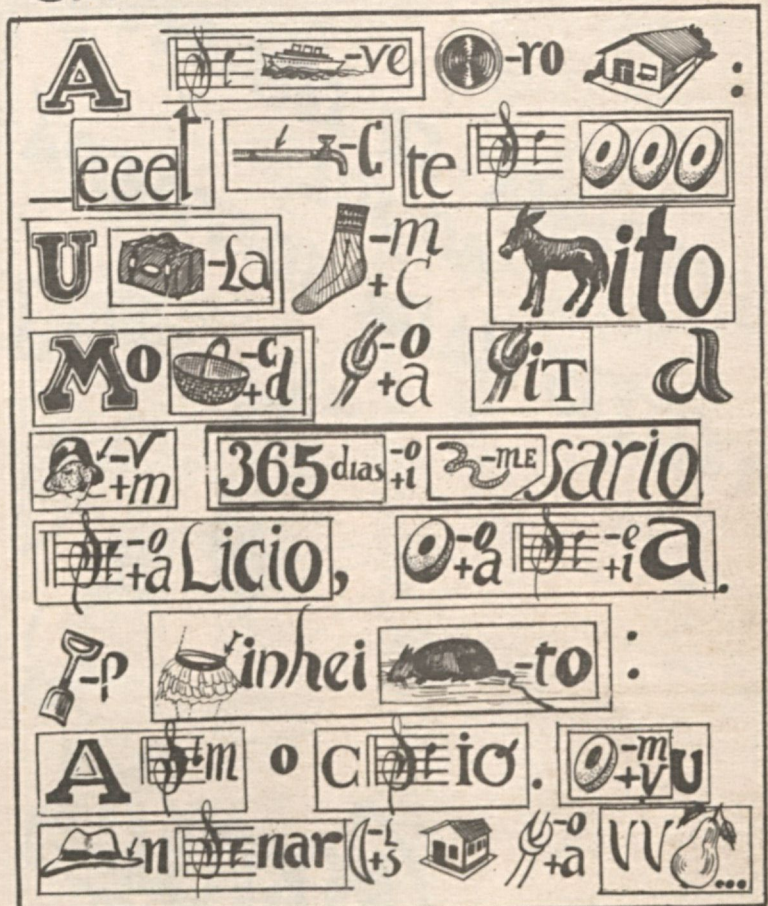 A -ve -ro :
_ eeet -c te
U -la -m +c ito
Mo -c +d -o +a iT d
-v +m 365 dias -o +i -ME sario
-o +a Licio, -o +a -e +i a.
-p inhei -to :
A m o c io. -m +v u
n nar -l +s -o +a vv ...